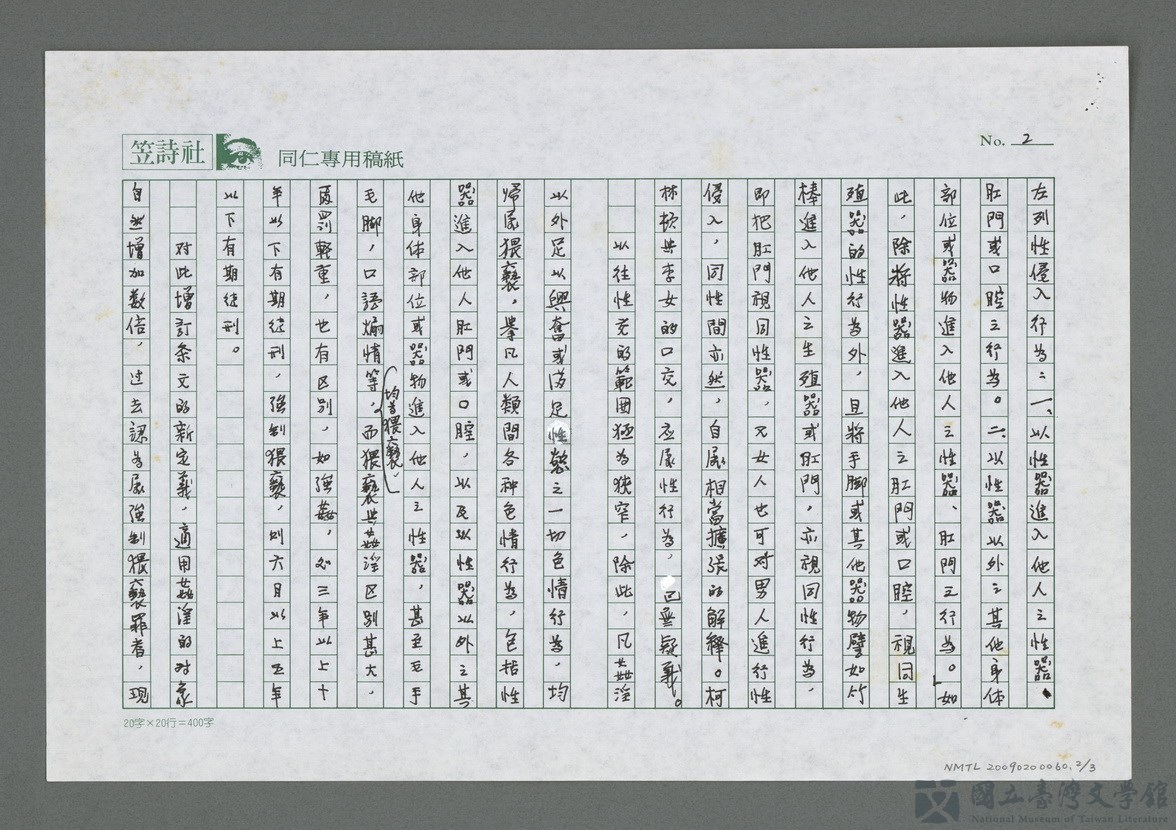 笠詩社 同仁專用稿紙
No. 2
左列性侵入行為：一、以性器進入他人之性器、
肛門或口腔之行為。二、以性器以外之其他身体
部位或器物進入他人之性器、肛門之行為。」如
此，除將性器進入他人之肛門或口腔，視同生
殖器的性行為外，且將手腳或其他器物譬如竹
棒進入他人之生殖器或肛門，亦視同性行為，
即把肛門視同性器，又女人也可对男人進行性
侵入，同性間亦然，自屬相當擴張的解釋。柯
林頓与李女的口交，应屬性行為，已無疑義。
以往性交的範围極為狹窄，除此，凡姦淫
以外足以興奮或满足性慾之一切色情行為，均
歸屬猥褻，舉凡人類間各种色情行為，包括性
器進入他人肛門或口腔，以及以性器以外之其
他身体部位或器物進入他人之性器，甚至毛手
毛脚，口語煽情等，均為猥褻，而猥褻与姦淫区别甚大，
處罰輕重，也有区别，如強姦，处三年以上十
年以下有期徒刑，強制猥褻，则六月以上五年
以下有期徒刑。
对此增訂条文的新定義，適用姦淫的对象
自然增加数倍，过去認為屬強制猥褻罪者，現
20字×20行＝400字
NMTL 20090200060.2/3
國立臺灣文學館
National Museum of Taiwan Literature